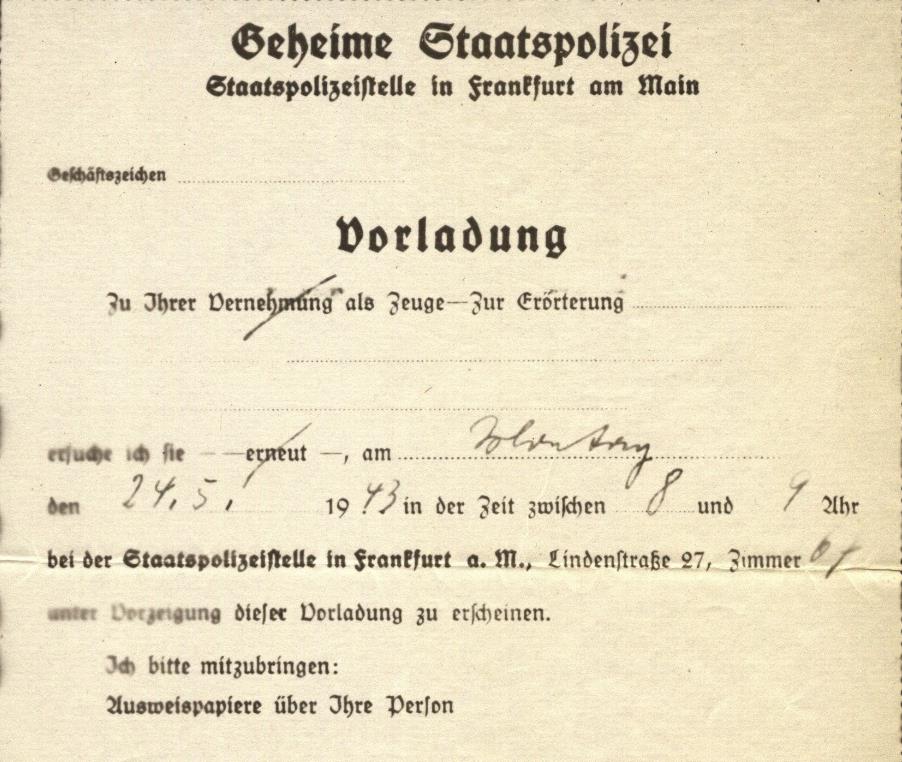 Geheime Staatspolizei
Staatspolizeistelle in Frankfurt am Main
Geschäftszeichen
Vorladung
Zu Ihrer Vernehmung als Zeuge—Zur Erörterung
ersuche ich sie — —erneut —, am Montag
den 24. 5. 1943 in der Zeit zwischen 8 und 9 Uhr
bei der Staatspolizeistelle in Frankfurt a. M., Lindenstraße 27, Zimmer
unter Vorzeigung dieser Vorladung zu erscheinen.
Ich bitte mitzubringen:
Ausweispapiere über Ihre Person